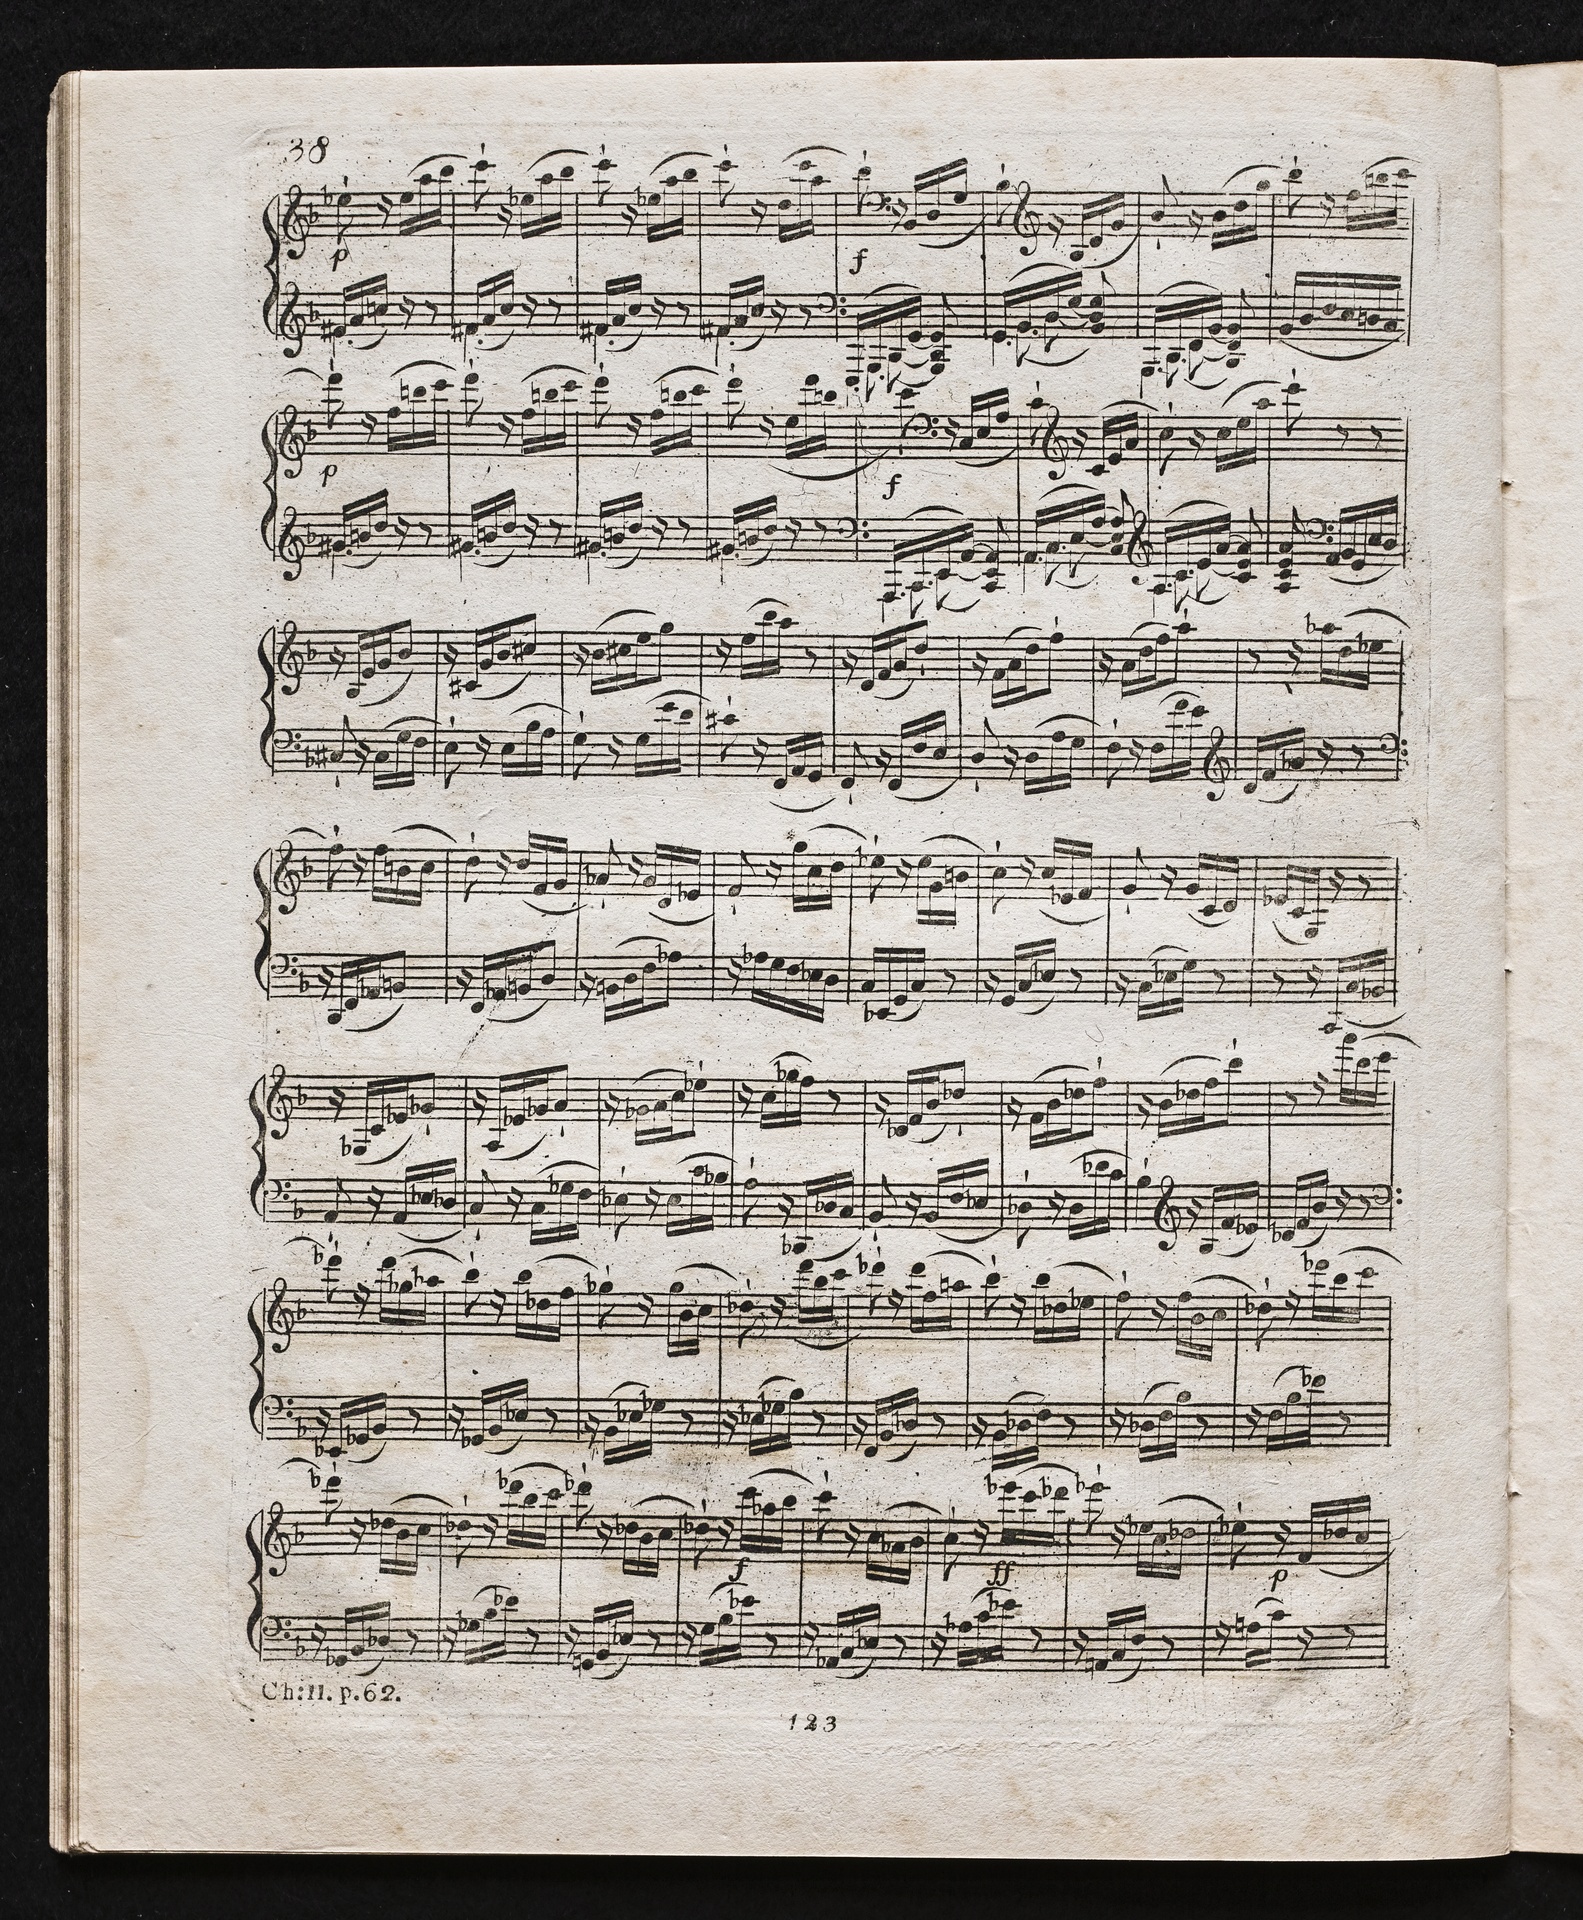 38
p
f
p
f
f
ff
p
Ch:11. p.62.
123